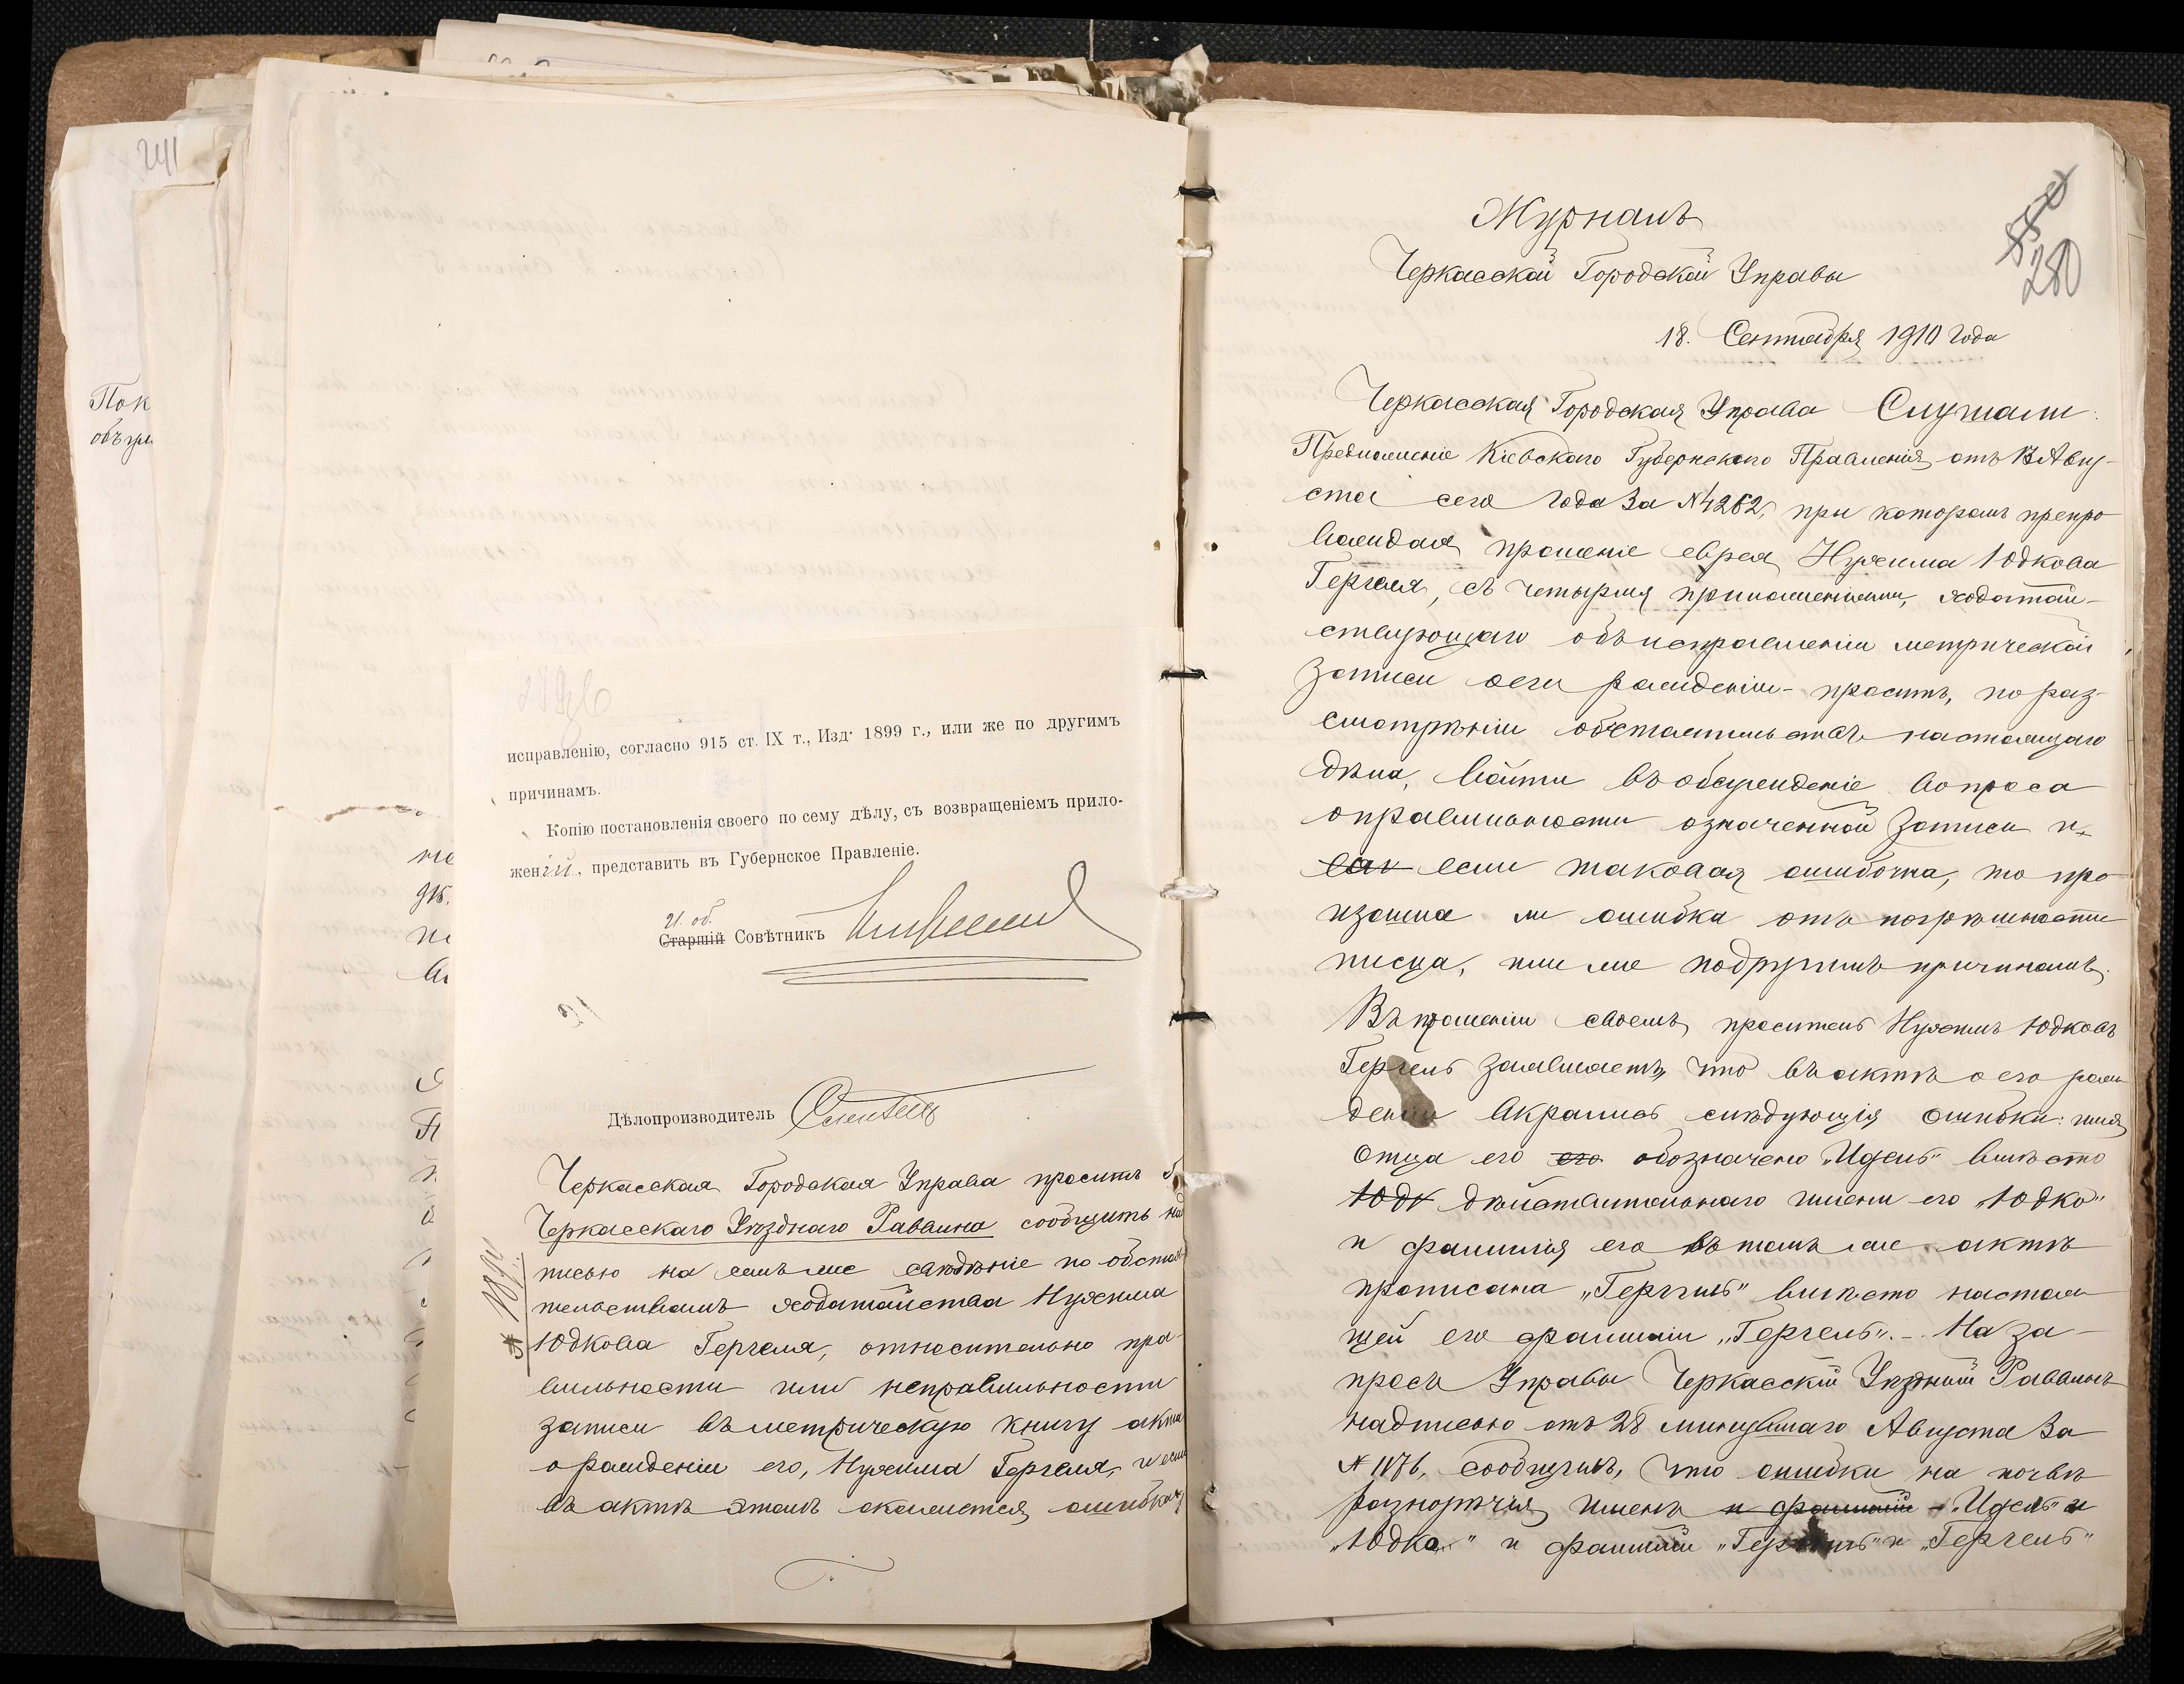 241
Пок
исправленію, согласно 915 ст. IX т., Изд. 1899 г., или же по другимъ
причинамъ.
Копію постановленія своего по сему дѣлу, съ возвращеніемъ прило-
женій, представить въ Губернское Правленіе.
И. об.
Старшій Совѣтникъ
Дѣлопроизводитель
Черкасская Городская Управа проситъ
Черкасскаго Уѣзднаго Раввина сообщить
писью на семъ же свѣдѣніе по обстоя
тельствамъ ходатайства Нухима
Юдкова Гергеля, относительно пра-
вильности или неправильности
записи въ метрическую книгу акта
о рожденіи его, Нухима Гергеля, и если
въ актѣ этомъ окажется ошибка,
280
Журналъ
Черкасской Городской Управы
18. Сентября 1910 года
Черкасская Городская Управа Слушали:
Предложеніе Кіевскаго Губернскаго Правленія отъ 13 Авгу-
ста сего года за № 4262, при которомъ препро
вождая прошеніе еврея Нухима Юдкова
Гергеля, съ четырмя приложеніями, ходатай-
ствующаго объ исправленіи метрической
записи о его рожденіи - проситъ, по раз-
смотрѣніи обстоятельствъ настоящаго
дѣла, войти въ обсужденіе вопроса
о правильности означенной записи и,
если таковая ошибочна, то про
изошла ли ошибка отъ погрѣшности
писца, или же по другимъ причинамъ.
Въ прошеніи своемъ, проситель Нухимъ Юдковъ
Гергель заявляетъ, что въ актѣ о его рож
деніи вкрались слѣдующія ошибки: имя
отца его его обозначено „Идель" вмѣсто
Юдк дѣйствительнаго имени его „Юдко"
и фамилія его въ томъ же актѣ
прописана „Гергиль" вмѣсто настоя
щей его фамиліи „Гергель". - На за-
просъ Управы Черкасскій Уѣздный Раввинъ
надписью отъ 28 минувшаго Августа за
№ 1176, сообщилъ, что ошибки на почвѣ
разнорѣчія именъ и фамиліи - „Идель" и
„Юдко" и фамиліи „Гергиль" и „Гергель"